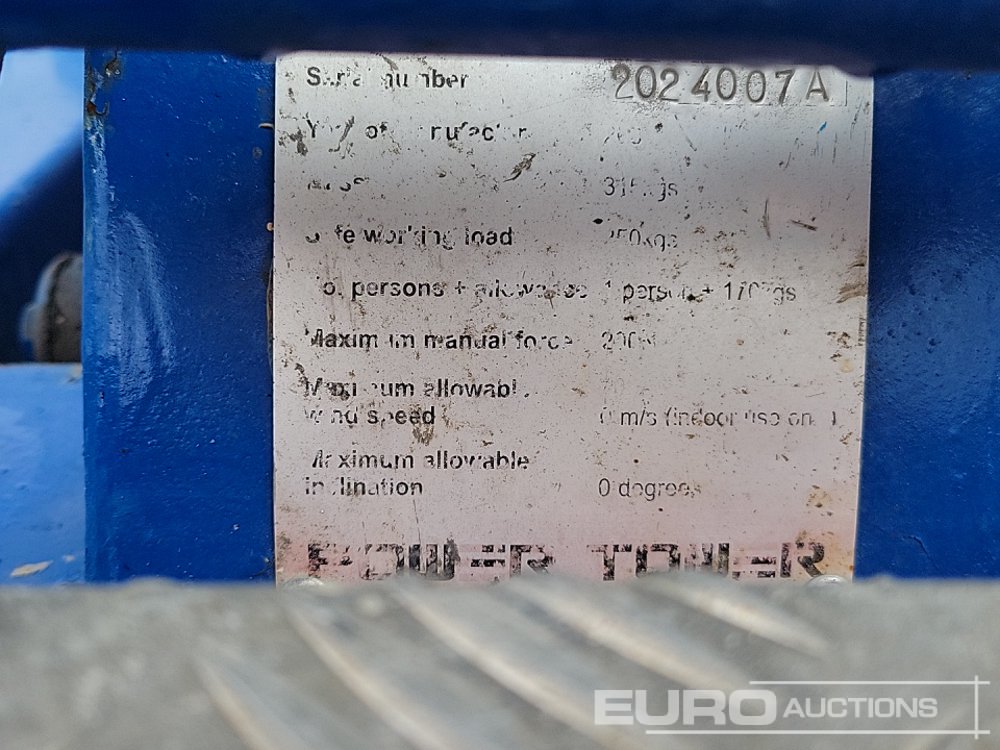 Serial number 2024007A
Year of manufacture
315kgs
Safe working load 250kgs
No. persons + allowance 1 person + 170kgs
Maximum manual force 200N
Maximum allowable
wind speed 0 m/s (indoor use only)
Maximum allowable
inclination 0 degrees
POWER TOWER
EURO AUCTIONS